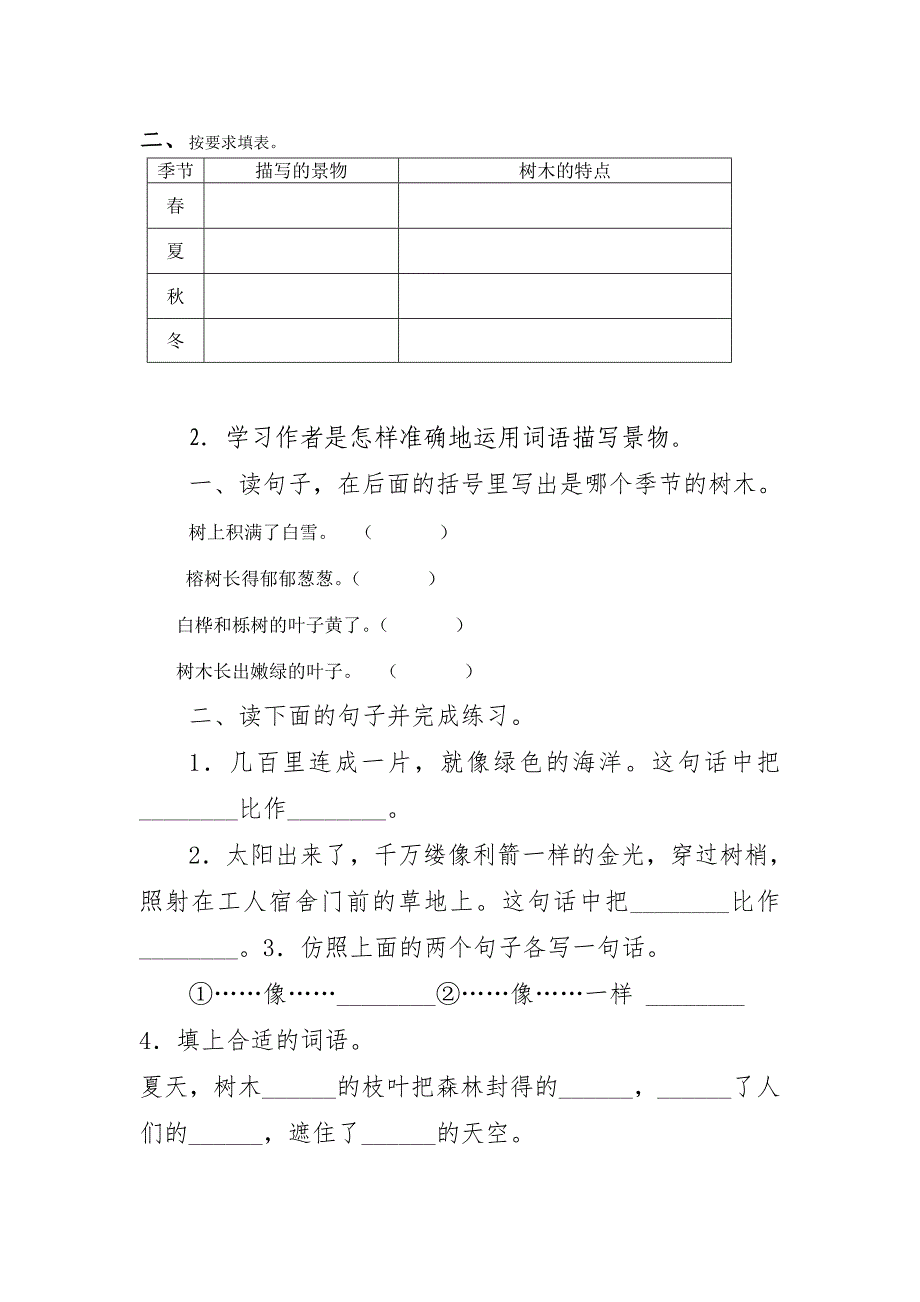 二、按要求填表。
季节 描写的景物 树木的特点
春
夏
秋
冬
2. 学习作者是怎样准确地运用词语描写景物。
一、读句子，在后面的括号里写出是哪个季节的树木。
树上积满了白雪。 （ ）
榕树长得郁郁葱葱。（ ）
白桦和栎树的叶子黄了。（ ）
树木长出嫩绿的叶子。 （ ）
二、读下面的句子并完成练习。
1．几百里连成一片，就像绿色的海洋。这句话中把
________比作________。
2．太阳出来了，千万缕像利箭一样的金光，穿过树梢，
照射在工人宿舍门前的草地上。这句话中把________比作
________。3．仿照上面的两个句子各写一句话。
①……像……________②……像……一样 ________
4．填上合适的词语。
夏天，树木______的枝叶把森林封得的______，______了人
们的______，遮住了______的天空。